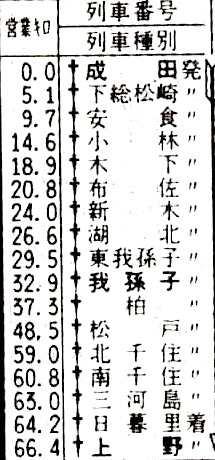 列車番号
営業キロ
列車種別
0.0 † 成田 発
5.1 † 下総松崎 〃
9.7 † 安食 〃
14.6 † 小林 〃
18.9 † 木下 〃
20.8 † 布佐 〃
24.0 † 新木 〃
26.6 † 湖北 〃
29.5 † 東我孫子 〃
32.9 † 我孫子 〃
37.3 † 柏 〃
48.5 松戸 〃
59.0 † 北千住 〃
60.8 † 南千住 〃
63.0 † 三河島 〃
64.2 † 日暮里 着
66.4 † 上野 〃